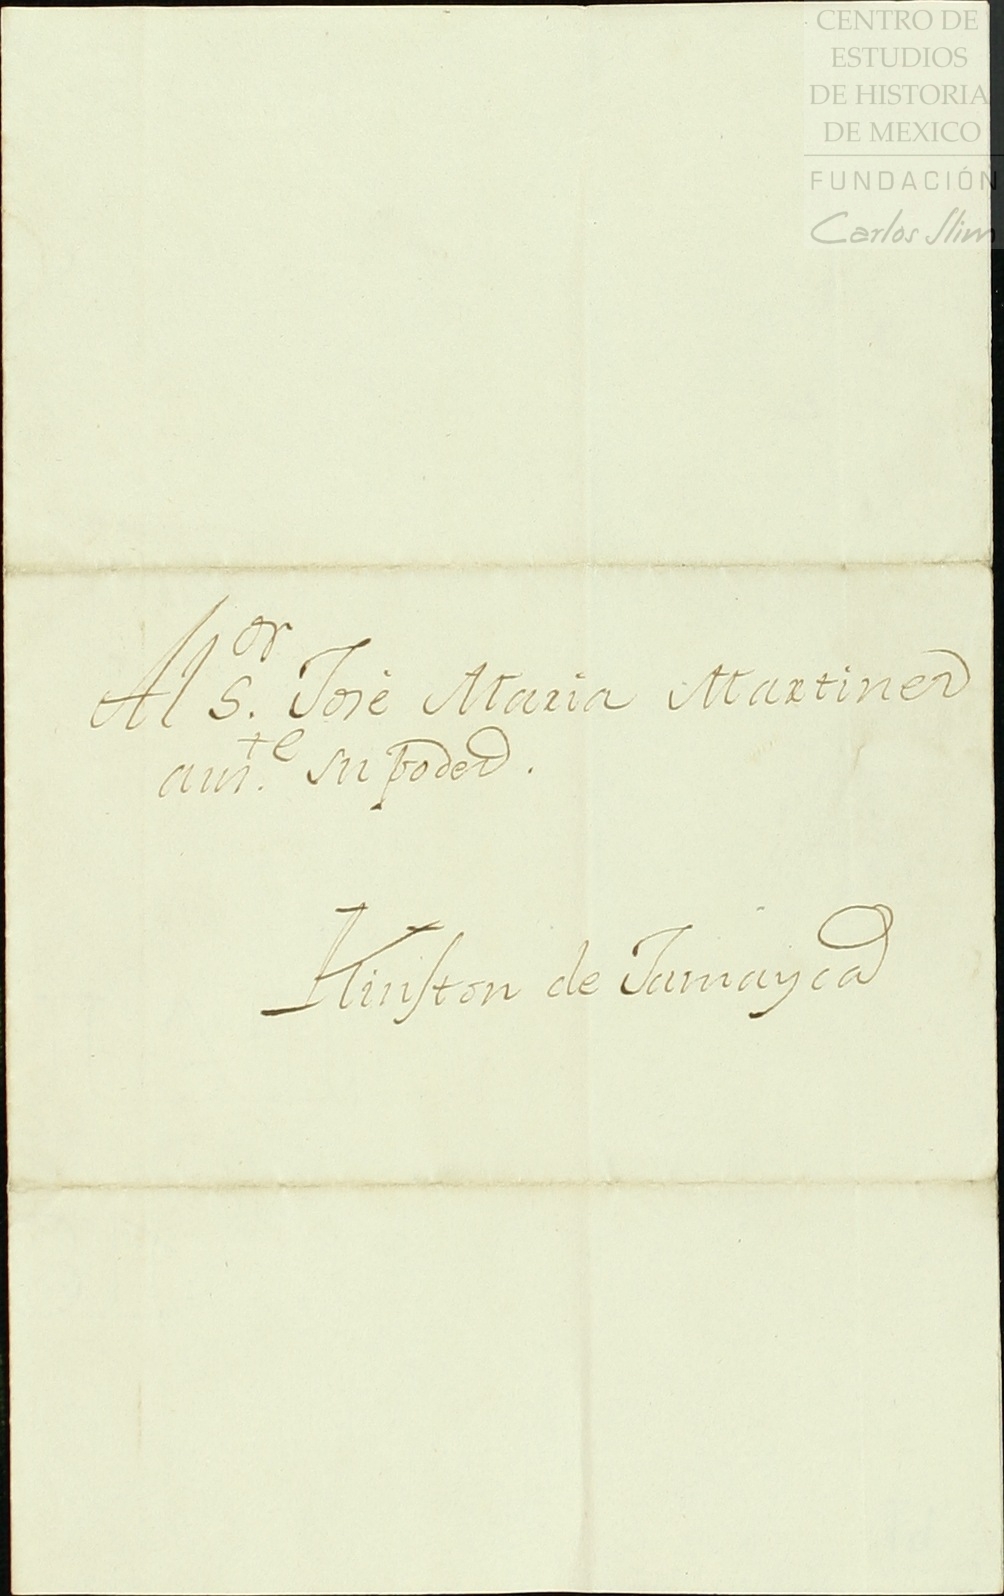 CENTRO DE
ESTUDIOS
DE HISTORIA
DE MEXICO
FUNDACIÓN
Carlos Slim
Al S.or José Maria Martinez
aus.te su poder.
Kinston de Jamayca